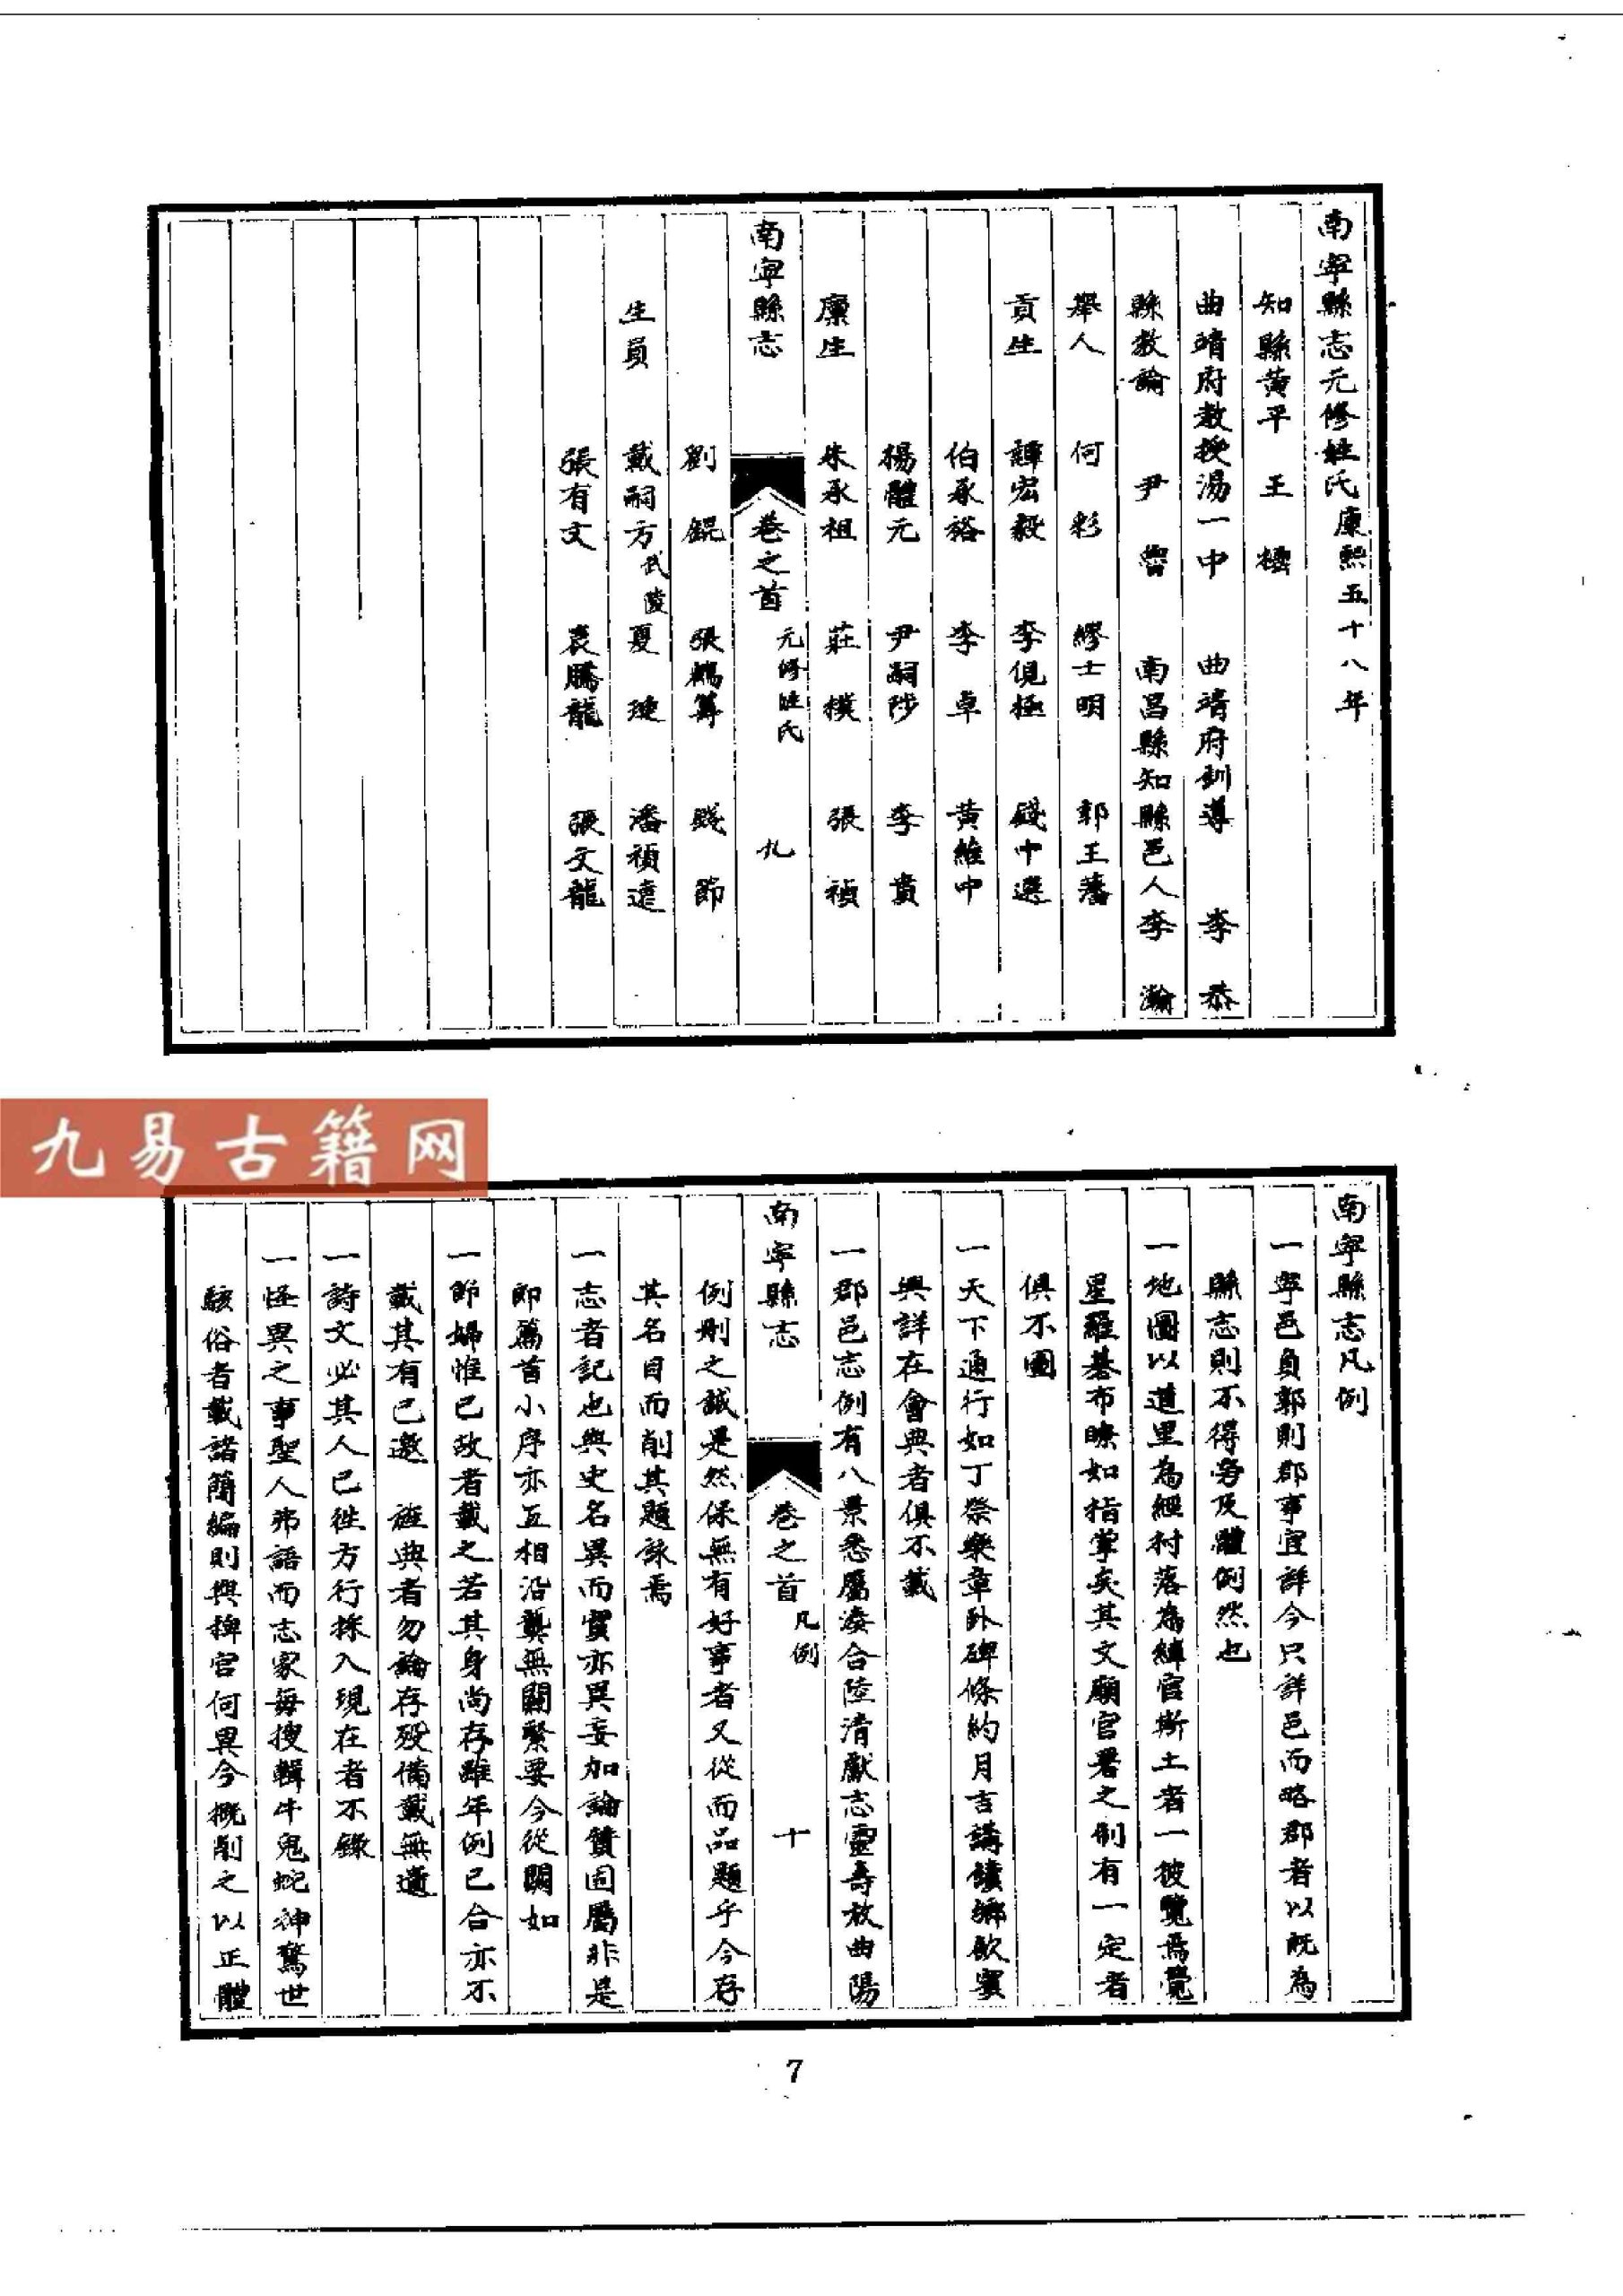 南寧縣志元修姓氏康熙五十八年
知縣黃平 王 橒
曲靖府教授湯一中 曲靖府訓導 李 恭
縣教諭 尹 曾 南昌縣知縣邑人李 瀚
舉人 何 彩 繆士明 郭王藩
貢生 譚宏毅 李俔極 錢中選
伯承裕 李 卓 黃維中
楊體元 尹嗣陟 李 貴
廩生 朱承祖 莊 樸 張 禎
南寧縣志 卷之首 元修姓氏 九
劉 錕 張鶴算 錢 節
生員 戴嗣方武陵 夏 璉 潘禎遠
張有文 袁騰龍 張文龍
九易古籍网
南寧縣志凡例
一寧邑負郭則郡事宜詳今只詳邑而略郡者以既為
縣志則不得旁及體例然也
一地圖以道里為經村落為緯官斯土者一彼覽焉覺
星羅碁布瞭如指掌矣其文廟官署之制有一定者
俱不圖
一天下通行如丁祭樂章卧碑條約月吉講讀鄉飲賓
興詳在會典者俱不載
一郡邑志例有八景悉屬湊合陸清獻志靈壽放曲陽
南寧縣志 卷之首 凡例 十
例刪之誠是然保無有好事者又從而品題乎今存
其名目而削其題詠焉
一志者記也與史名異而實亦異妄加論贊固屬非是
即篇首小序亦互相沿襲無關繫要今從闕如
一節婦惟已故者載之若其身尚存雖年例已合亦不
載其有已邀 旌典者勿論存歿備載無遺
一詩文必其人已往方行採入現在者不錄
一怪異之事聖人弗語而志家每搜輯牛鬼蛇神驚世
駭俗者載諸簡編則與稗官何異今概削之以正體
7